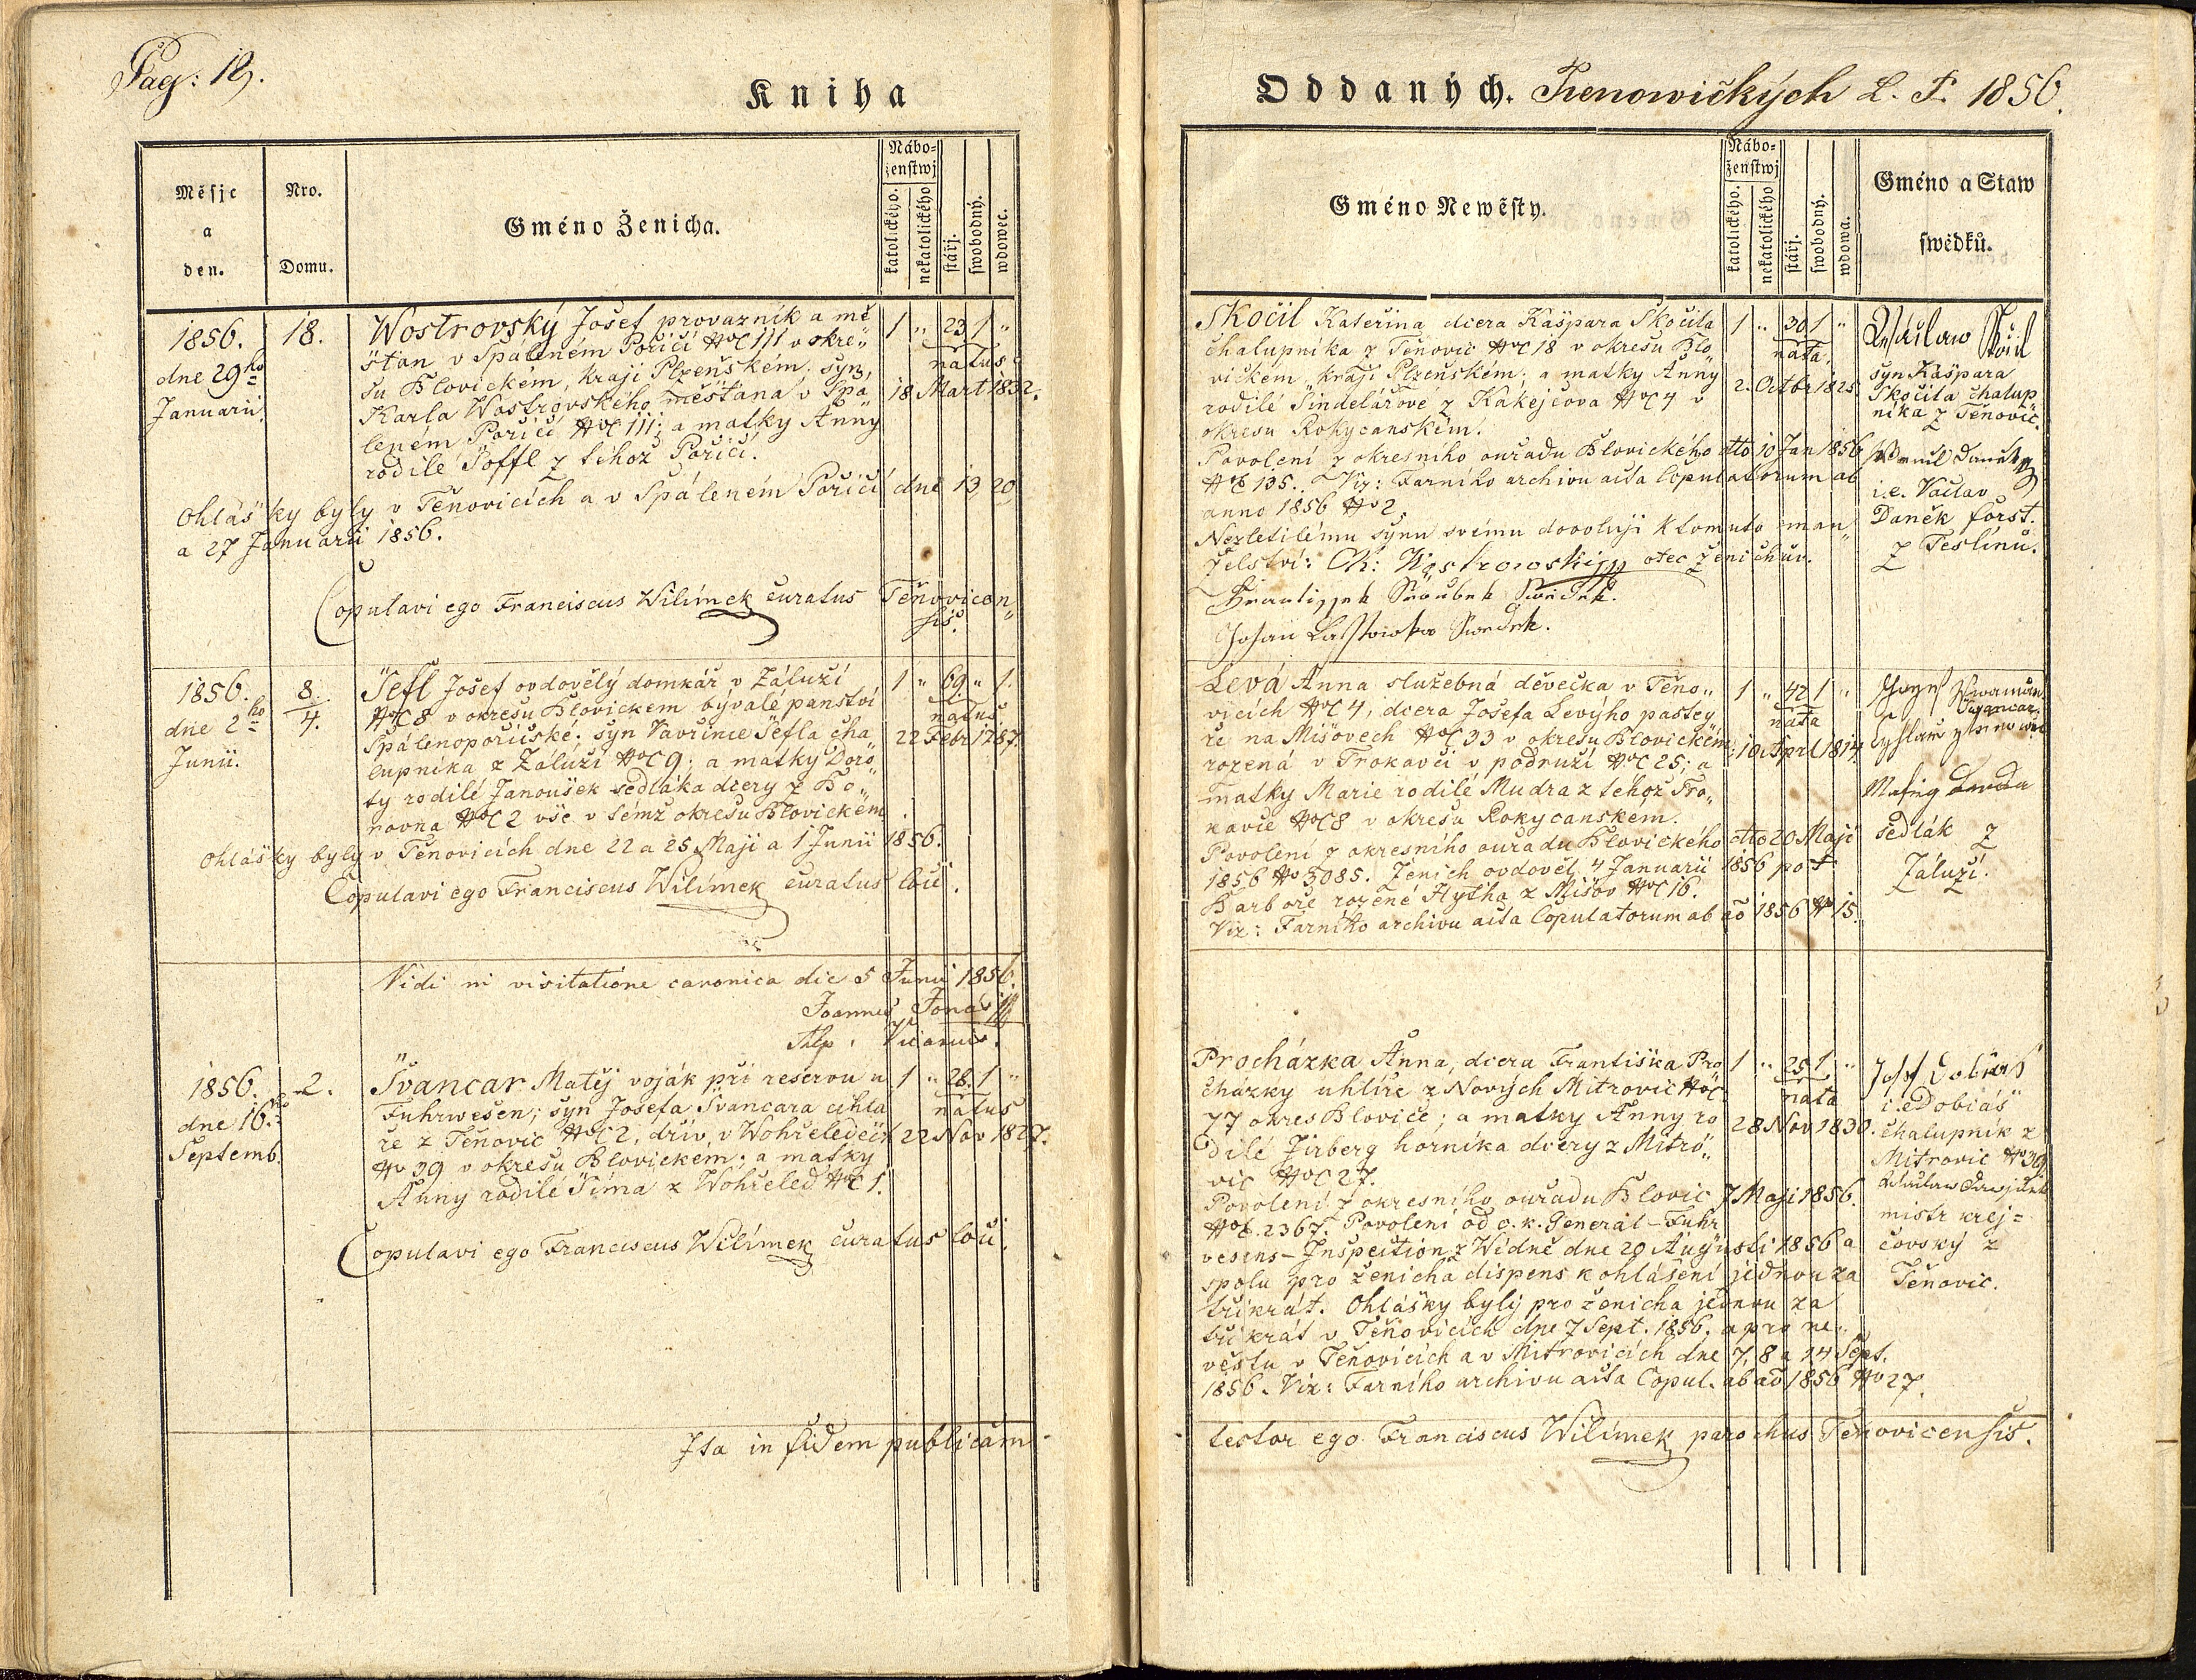 Pag: 19.
Kniha
Měsjc
a
den.
Nro.
Domu.
Gméno Ženicha.
Nábo-
ženstwj
katolického.
nekatolického
stářj.
swobodný.
wdowec.
1856.
dne 29ho
Januarii
18.
Wostrovský Josef provazník a mě
šťan v Spáleném Poříčí NC 111 v okre„
su Blovickém, kraji Plzeňském; syn,
Karla Wostrovského měšťana v Spá„
leném Poříčí NC 111; a matky Anny
rodilé Poffl z téhož Poříčí.
1 „ 23 1 „
natus
18 Mart 1832.
Ohlášky byly v Těnovicích a v Spáleném Poříčí dne 13, 20
a 27 Januarii 1856.
Copulavi ego Franciscus Wilímek curatus Těnovicen„
sis.
1856.
dne 2ho
Junii.
8.
4.
Šefl Josef ovdovělý domkář v Záluží
NC 8 v okresu Blovickém bývalé panství
Spálenopoříčské; syn Vavřince Šefla cha
lupníka z Záluží NC 9; a matky Doro„
ty rodilé Janoušek sedláka dcery z Bo„
rovna NC 2 vše v témž okresu Blovickém.
1 „ 69 „ 1.
natus
22 Febr 1787.
Ohlášky byly v Těnovicích dne 22 a 25 Maji a 1 Junii 1856.
Copulavi ego Franciscus Wilímek curatus loci.
Vidi in visitatione canonica die 5 Junii 1856.
Joannes Jonáš
Vicarius.
1856.
dne 16ho
Septemb.
2.
Švancar Matěj voják při reservu u
Fuhrwesen; syn Josefa Švancara cihlá
ře z Těnovic NC 2, dřív v Wohřeledech
No 39 v okresu Blovickém; a matky
Anny rodilé Šíma z Wohřeled NC 1.
1 „ 28. 1 „
natus
22 Nov 1827.
Copulavi ego Franciscus Wilímek curatus loci.
Ita in fidem publicam
Oddaných. Tienowičkých L. P. 1856.
Gméno Newěsty.
Nábo-
ženstwj
katolického.
nekatolického
stářj.
swobodný.
wdowa.
Gméno a Staw
swědků.
Skočil Kateřina dcera Kašpara Skočila
chalupníka z Těnovic NC 18 v okresu Blo
vickém, kraji Plzeňském; a matky Anny
rodilé Šindelářove z Kakejcova NC 4 v
okresu Rokycanském.
1 „ 30 1 „
nata
2. Octbr 1825
Povolení z okresního ouřadu Blovického dto 10 Jan 1856
NE 135. Viz: Farního archivu acta Copulatorum ab
anno 1856 No 2.
Nezletilému synu svému dovoluji k tomuto man„
želství: K: Wostrowski otec ženichův.
Frantissek Swědek.
Johan Lastowička Swedek.
Wáclaw Skočil
syn Kašpara
Skočila chalup
níka z Těnovic.
i.e. Václav
Daněk forst.
z Teslínu.
Levá Anna služebná děvečka v Těno„
vicích NC 4, dcera Josefa Levýho pastey
ře na Míšovech NC 33 v okresu Blovickém;
rozená v Trokavci v podruží NC 25; a
matky Marie rodilé Mudra z téhož Tro„
kavce NC 8 v okresu Rokycanském.
1 „ 42 1 „
nata
10 April 1814
Povolení z okresního ouřadu Blovického dto 20 Maji
1856 No 3085. Ženich ovdověl 4 Januarii 1856 po †
Barboře rozené Hytha z Míšov NC 16.
Viz: Farního archivu acta Copulatorum ab ao 1856 No 15.
Švancar
sedlák z
Záluží.
Procházka Anna, dcera Františka Pro
cházky uhlíře z Nových Mitrovic NC
77 okres Blovice; a matky Anny ro
dilé Jirberg horníka dcery z Mitro„
vic NC 27.
1 „ 25 1 „
nata
28 Nov 1830.
Povolení z okresního ouřadu Blovic 7 Maji 1856.
NE. 2367. Povolení od c. k. General-Fuhr
vesens-Inspection z Wídně dne 20 Augusti 1856 a
spolu pro ženicha dispens k ohlášení jednou za
třikrát. Ohlášky byly pro ženicha jednou za
třikrát v Těnovicích dne 7 Sept. 1856. a pro ne„
věstu v Těnovicích a v Mitrovicích dne 7, 8 a 14 Sept.
1856. Viz: Farního archivu acta Copul. ab ao 1856 No 27.
i.e Dobiáš
chalupník z
Mitrovic No 39
mistr krej=
čovský z
Těnovic.
testor ego Franciscus Wilímek parochus Těnovicensis.